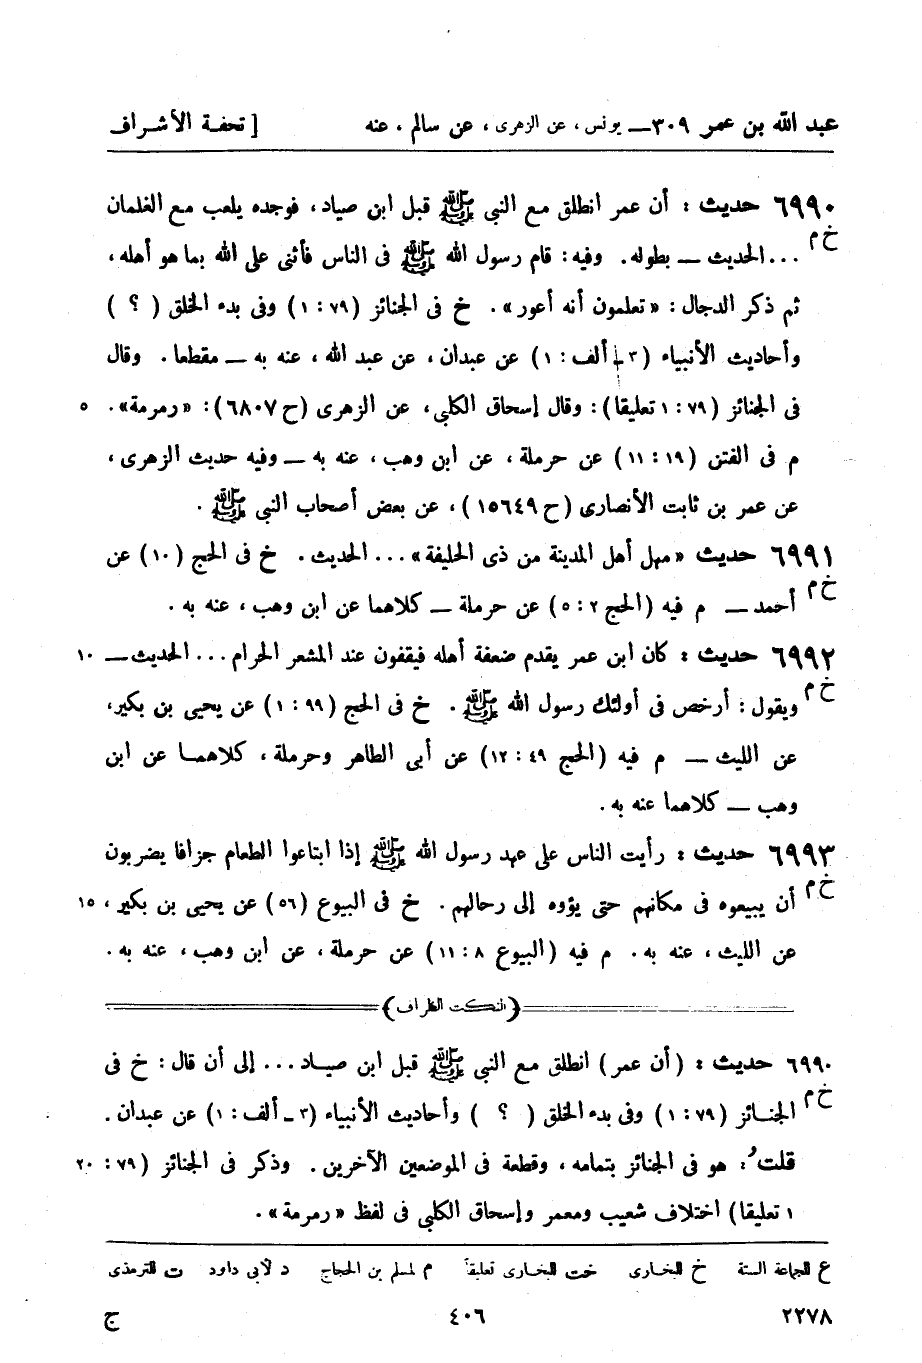 عبد الله بن عمر ٣٠٩ــ يونس، عن الزهرى، عن سالم، عنه [ تحفة الأشراف
٦٩٩٠ حديث : أن عمر انطلق مع النبي ﷺ قبل ابن صياد، فوجده يلعب مع الغلمان
خ م ...الحديث ــ بطوله. وفيه: قام رسول الله ﷺ فى الناس فأثنى على الله بما هو أهله،
ثم ذكر الدجال: «تعلمون أنه أعور». خ فى الجنائز (٧٩: ١) وفى بدء الخلق ( ؟ )
وأحاديث الأنبياء (٣ــ ألف: ١) عن عبدان، عن عبد الله، عنه به ــ مقطعا. وقال
فى الجنائز (٧٩: ١ تعليقا): وقال إسحاق الكلبى، عن الزهرى (ح ٦٨٠٧): «رمرمة». ٥
م فى الفتن (١٩: ١١) عن حرملة، عن ابن وهب، عنه به ــ وفيه حديث الزهرى،
عن عمر بن ثابت الأنصارى (ح ١٥٦٤٩)، عن بعض أصحاب النبي ﷺ .
٦٩٩١ حديث «مهل أهل المدينة من ذى الحليفة»...الحديث. خ فى الحج (١٠) عن
خ م أحمد ــ م فيه (الحج ٢: ٥) عن حرملة ــ كلاهما عن ابن وهب، عنه به.
٦٩٩٢ حديث : كان ابن عمر يقدم ضعفة أهله فيقفون عند المشعر الحرام...الحديث ــ ١٠
خ م ويقول: أرخص فى أولئك رسول الله ﷺ. خ فى الحج (٩٩: ١) عن يحيى بن بكير،
عن الليث ــ م فيه (الحج ٤٩: ١٢) عن أبى الطاهر وحرملة، كلاهما عن ابن
وهب ــ كلاهما عنه به.
٦٩٩٣ حديث : رأيت الناس على عهد رسول الله ﷺ إذا ابتاعوا الطعام جزافا يضربون
خ م أن يبيعوه فى مكانهم حتى يؤوه إلى رحالهم. خ فى البيوع (٥٦) عن يحيى بن بكير، ١٥
عن الليث، عنه به. م فيه (البيوع ٨: ١١) عن حرملة، عن ابن وهب، عنه به.
(النكت الظراف)
٦٩٩٠ حديث : (أن عمر) انطلق مع النبي ﷺ قبل ابن صياد... إلى أن قال: خ فى
خ م الجنائز (٧٩: ١) وفى بدء الخلق ( ؟ ) وأحاديث الأنبياء (٣ ـ ألف: ١) عن عبدان.
قلتُ: هو فى الجنائز بتمامه، وقطعة فى الموضعين الآخرين. وذكر فى الجنائز (٧٩: ٢٠
١ تعليقا) اختلاف شعيب ومعمر وإسحاق الكلبى فى لفظ «رمرمة».
ع للجماعة الستة خ للبخارى خت للبخارى تعليقاً م لمسلم بن الحجاج د لأبى داود ت للترمذى
٢٢٧٨ ٤٠٦ ج